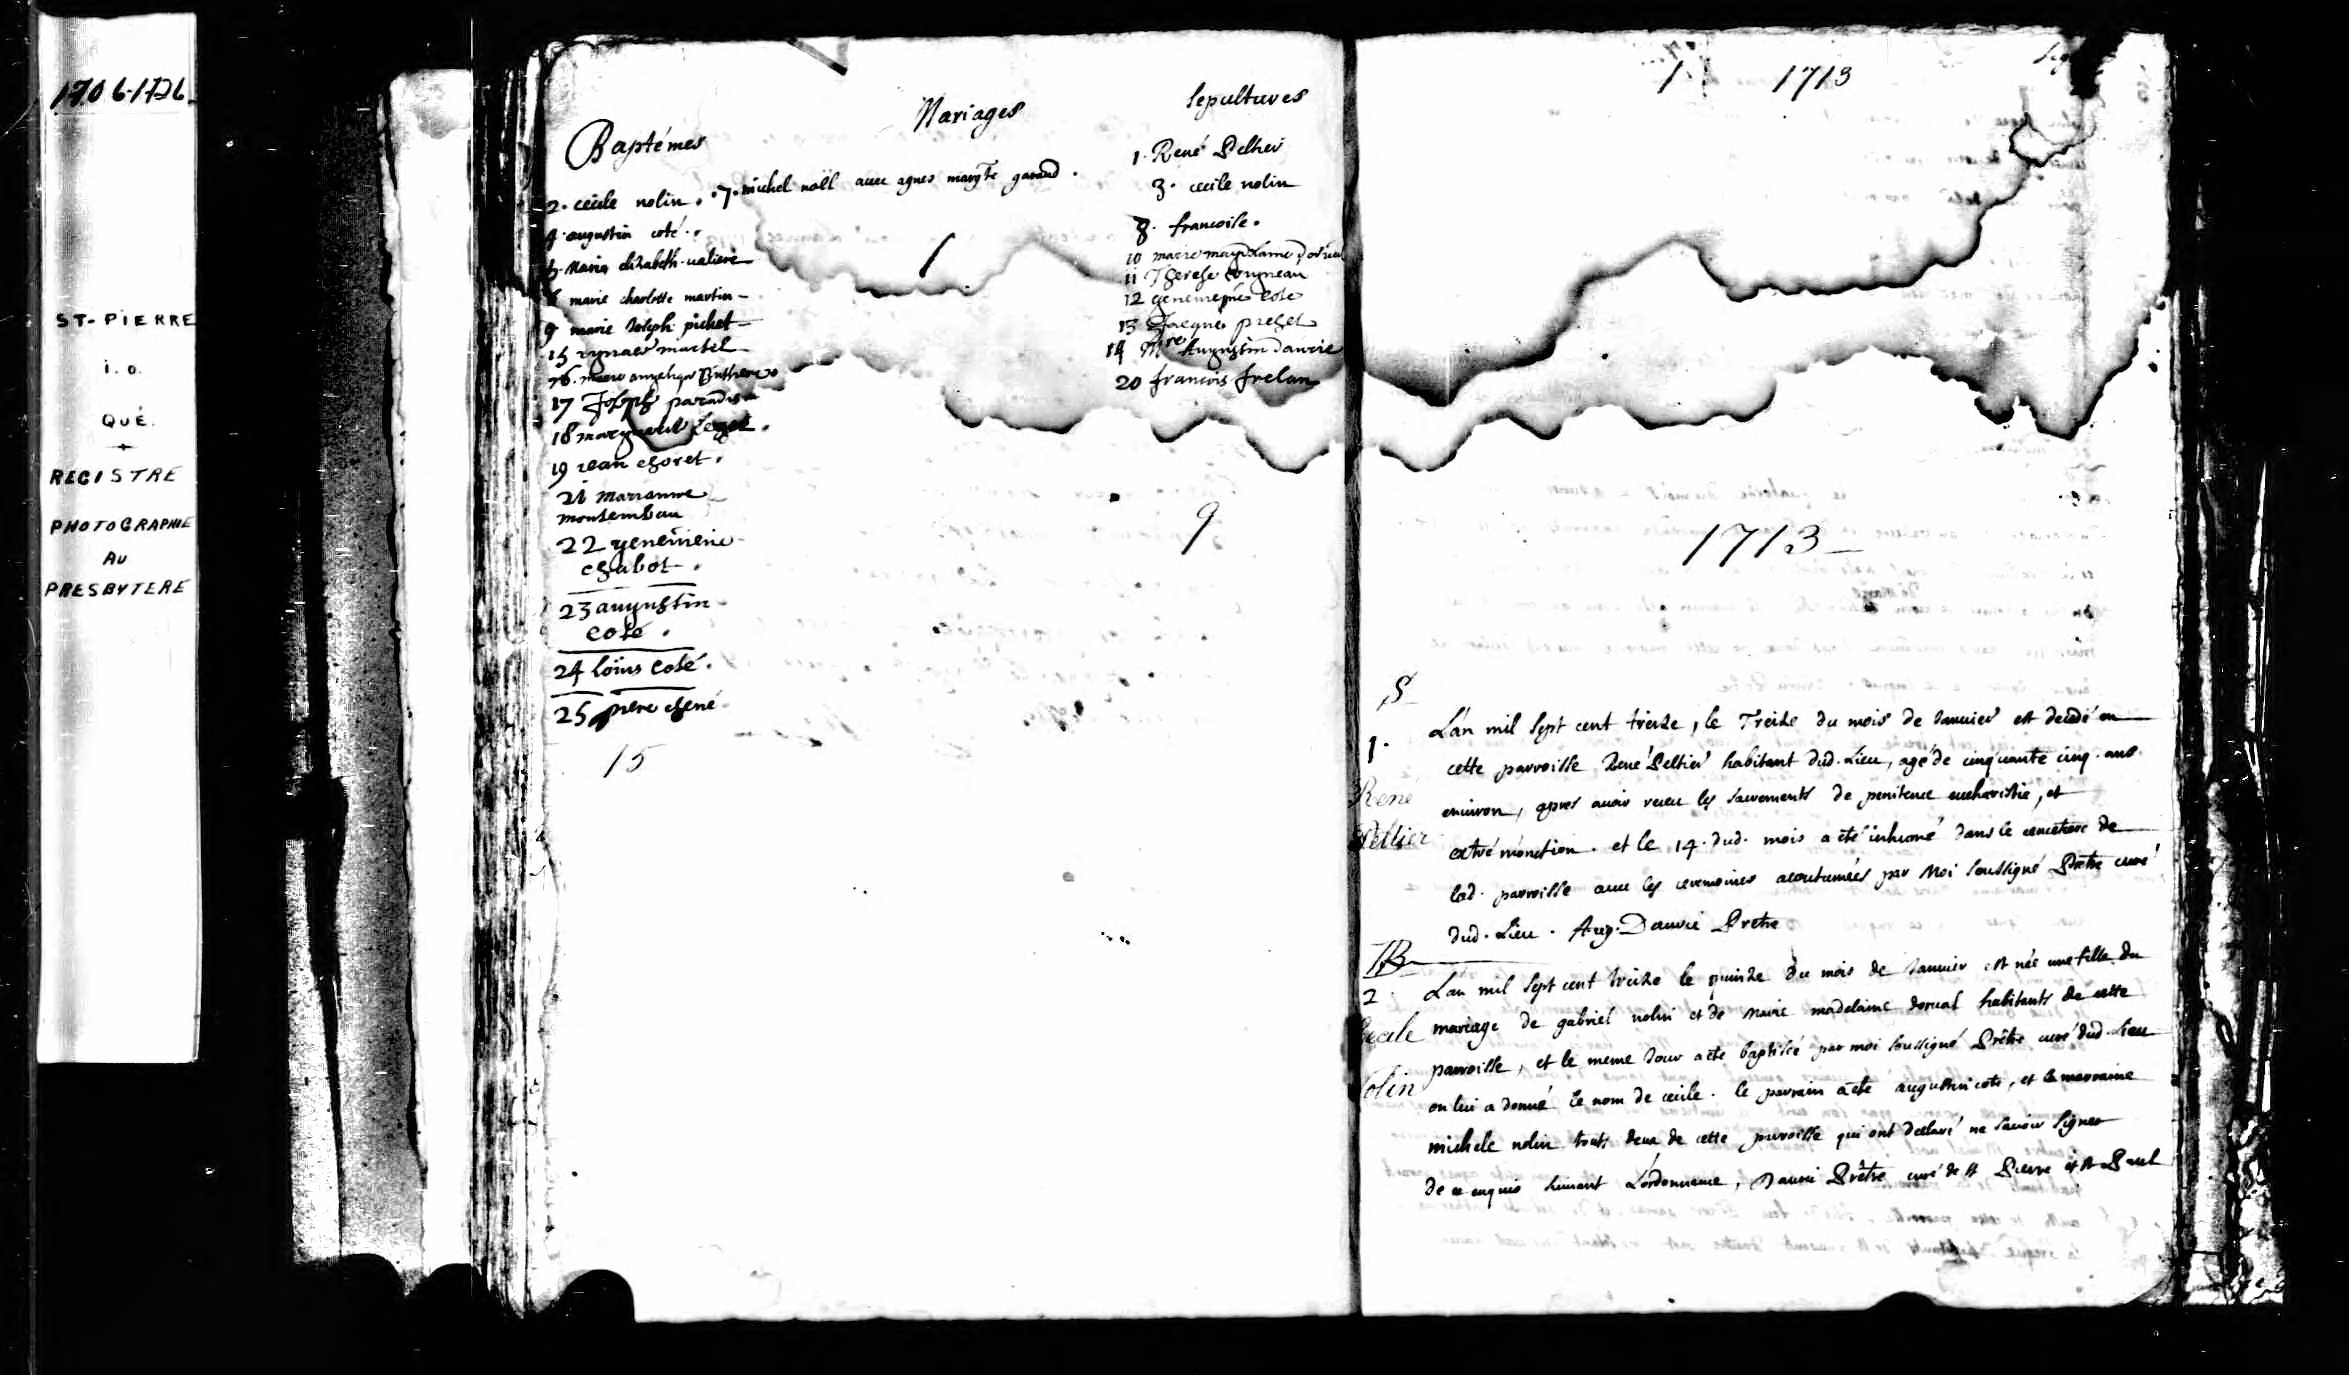 1706-1726
ST-PIERRE
i.o.
QUÉ.
+
REGISTRE
PHOTOGRAPHIÉ
AU
PRESBYTERE
Baptémes
2. cecile nolin.
4. augustin coté.
5. Maria elizabeth valiere
6 marie charlotte martin
9 marie Joseph pichet
15 martel
16. marie angelique
17 Joseph paradis
18
19 Jean choret.
21 marianne
montembau
22 genevieve
chabot.
23 augustin
coté.
24 loüis coté.
25 piere chené
15
Mariages
7. michel noël avec agnes margte garaud.
1
Sepultures
1. René Peltier
3. cecile nolin
8. francoise.
10 marie magdelaine dorval
11 Therese
12 genevieve coté
13 Jacque prezet
14 Mre Augustin Dauric
20 francois frelan
9
1 1713
1713
S
1.
René
Peltier
L'an mil sept cent treize, le Treize du mois de Janvier est decedé en
cette parroisse René Peltier habitant dud. Lieu, agé de cinquante cinq. ans
environ, apres avoir receu les sacrements de penitence eucharistie, et
extrémonction. et le 14. dud. mois a eté inhumé dans le cemetiere de
lad. parroisse avec les ceremonies acoutumées par Moi soussigné Prêtre curé
dud. Lieu. Aug. Dauric Prêtre
B
2.
Cecile
Nolin
L'an mil sept cent treize le quinze du mois de Janvier est née une fille du
mariage de gabriel nolin et de Marie madelaine dorval habitants de cette
parroisse, et le meme Jour a eté baptisée par moi soussigné Prêtre curé dud. Lieu
on lui a donné le nom de cecile. le parrain a eté augustin coté, et la marraine
michele nolin touts deux de cette parroisse qui ont declaré ne savoir signer
de ce enquis suivant L'ordonnance, Dauric Prêtre curé de St Pierre et St Paul